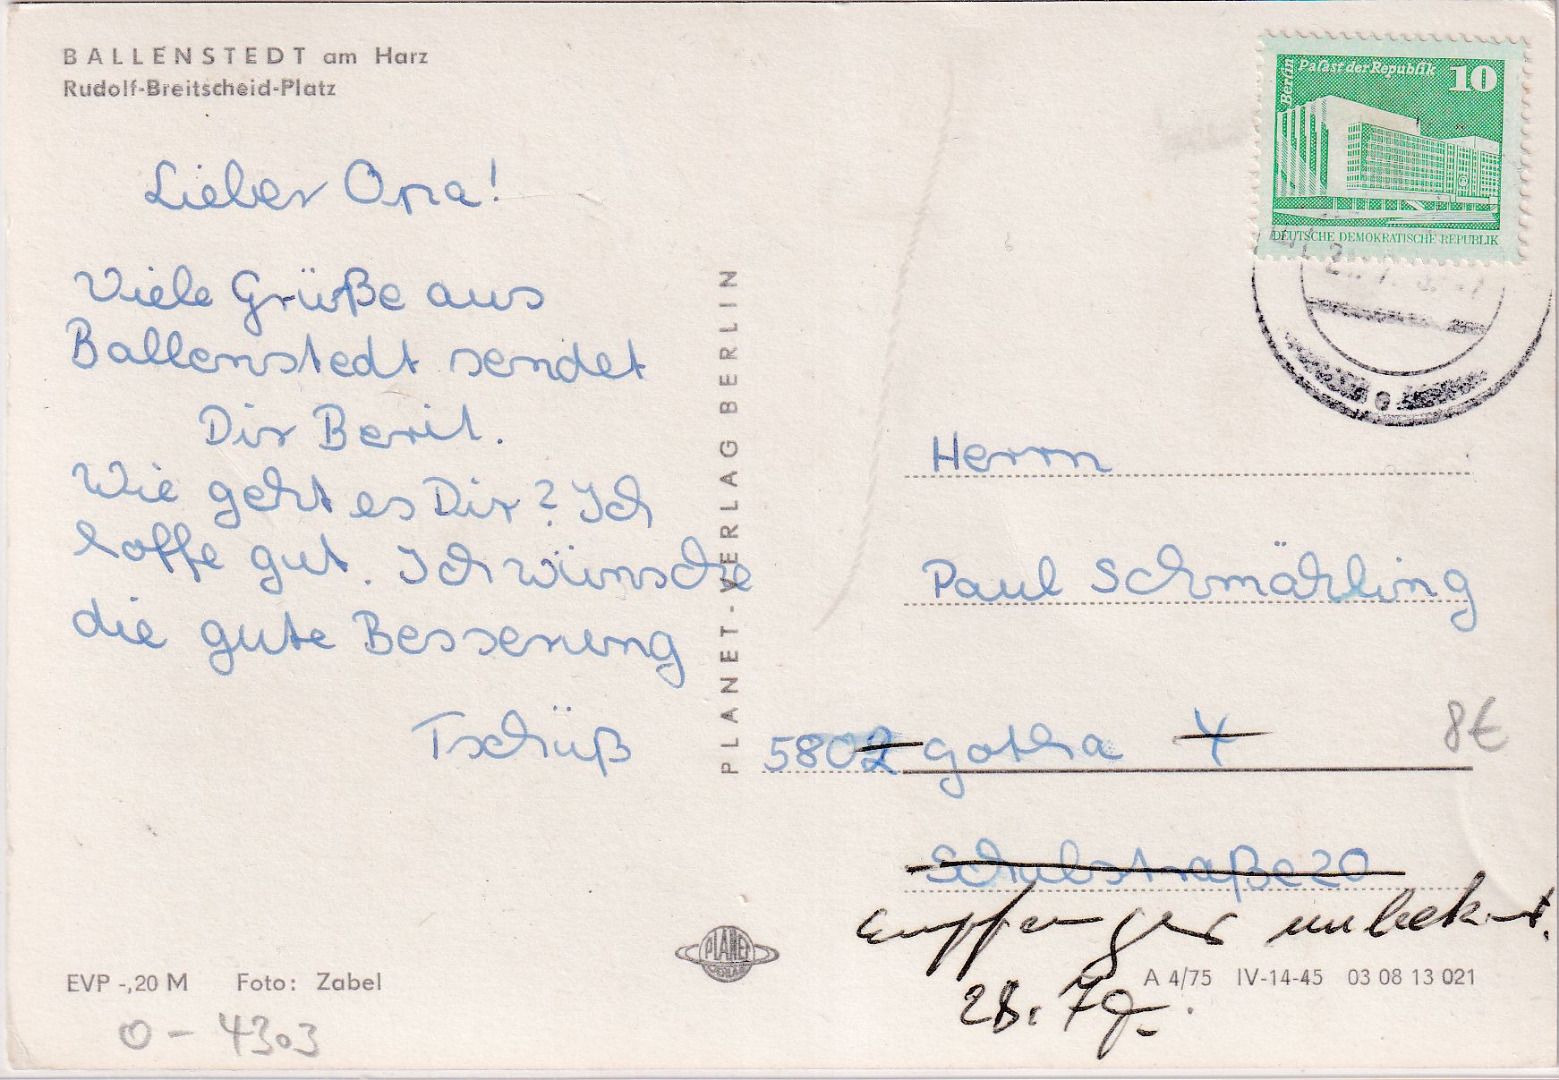 BALLENSTEDT am Harz
Rudolf-Breitscheid-Platz
Lieber Opa!
Viele Grüße aus
Ballenstedt sendet
Dir Berit.
Wie geht es Dir? Ich
hoffe gut. Ich wünsche
die gute Besserung
Tschüß
EVP -,20 M Foto: Zabel
O - 4303
PLANET-VERLAG BERLIN
PLANET
BERLIN
Berlin
Palast der Republik 10
DEUTSCHE DEMOKRATISCHE REPUBLIK
Herrn
Paul Schmähling
5802 Gotha 4
8€
Schulstraße 20
Empfänger unbekannt.
28. 7
A 4/75 IV-14-45 03 08 13 021